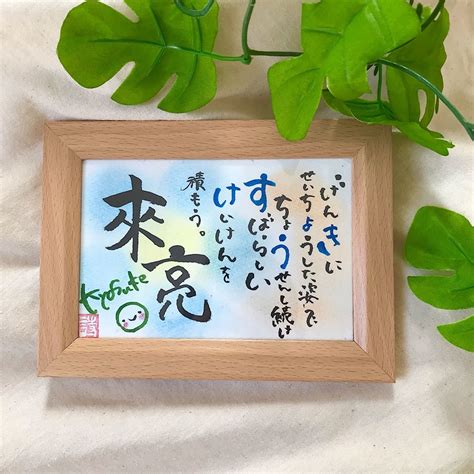 げんきに
せいちょうした姿で
ちょうせんし続け
すばらしい
けいけんを
積もう。
來亮
Kyosuke